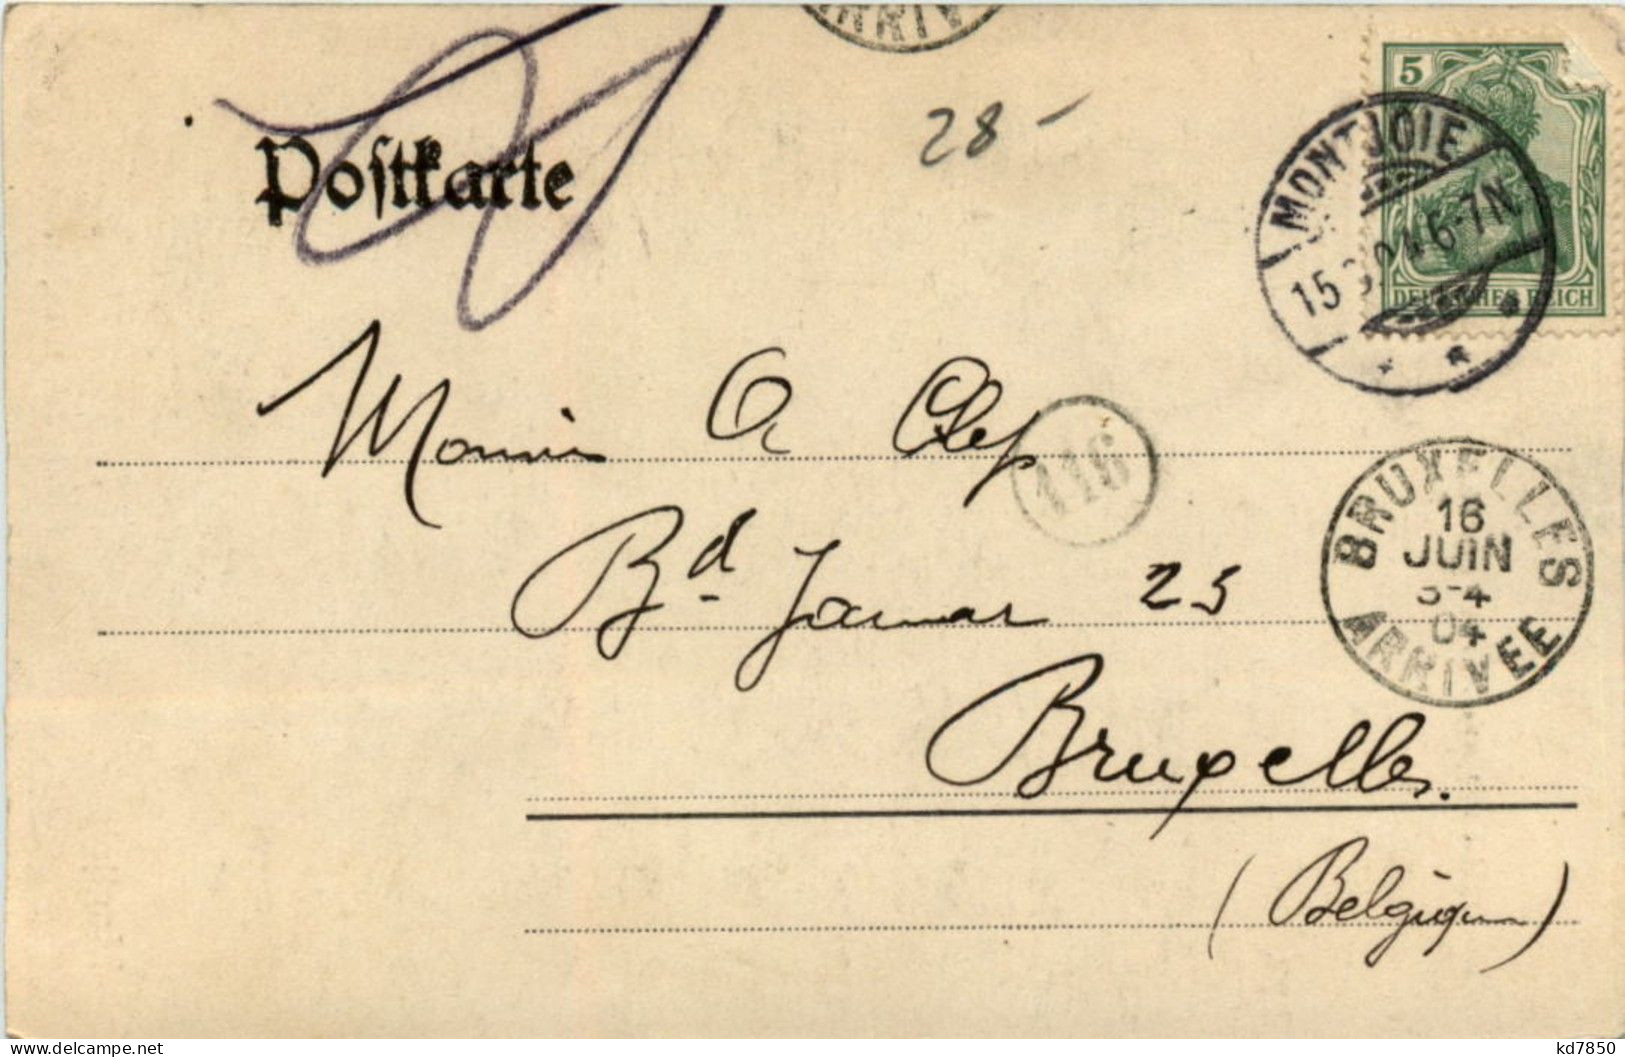 ARRIV
5
28-
Postkarte
MONTJOIE
15 6.04 6-7N
DEUTSCHES REICH
A
116
Bd Jamar 25
BRUXELLES
16
JUIN
3-4
04
ARRIVEE
Bruxelles.
(Belgique)
kd7850